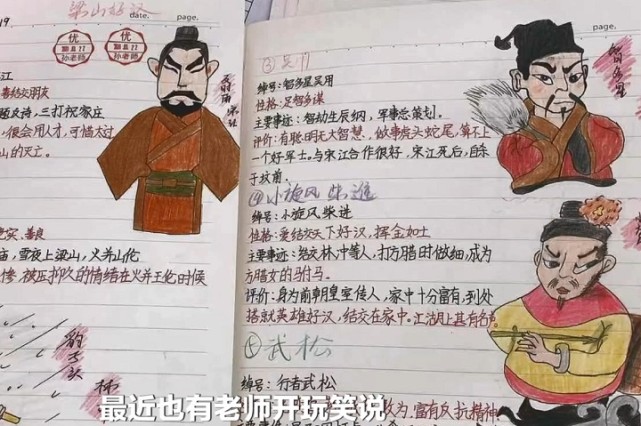 梁山好汉
date.
page.
优
孙老师
优
孙老师
江
喜结交朋友
题反诗，三打祝家庄
很会用人才，可惜太过
山的灭亡。
及时雨
宋江
善良
庙，雪夜上梁山，火并王伦
惨，被压抑久的情绪在火并王伦时候
豹子头
林
date.
page.
③吴用
绰号：智多星吴用
性格：足智多谋
主要事迹：智劫生辰纲，军事总策划。
评价：有聪明无大智慧，做事虎头蛇尾，算不上
一个好军士。与宋江合作很好，宋江死后，自杀
于坟前。
智多星
④小旋风 柴进
绰号：小旋风柴进
性格：爱结交天下好汉，挥金如土
主要事迹：结交林冲等人，打方腊时做细，成为
方腊女的驸马。
评价：身为前朝皇室传人，家中十分富有，到处
搭就英雄好汉，结交在家中。江湖上甚有名声
⑤武松
绰号：行者武松
为，富有反抗精神
最近也有老师开玩笑说